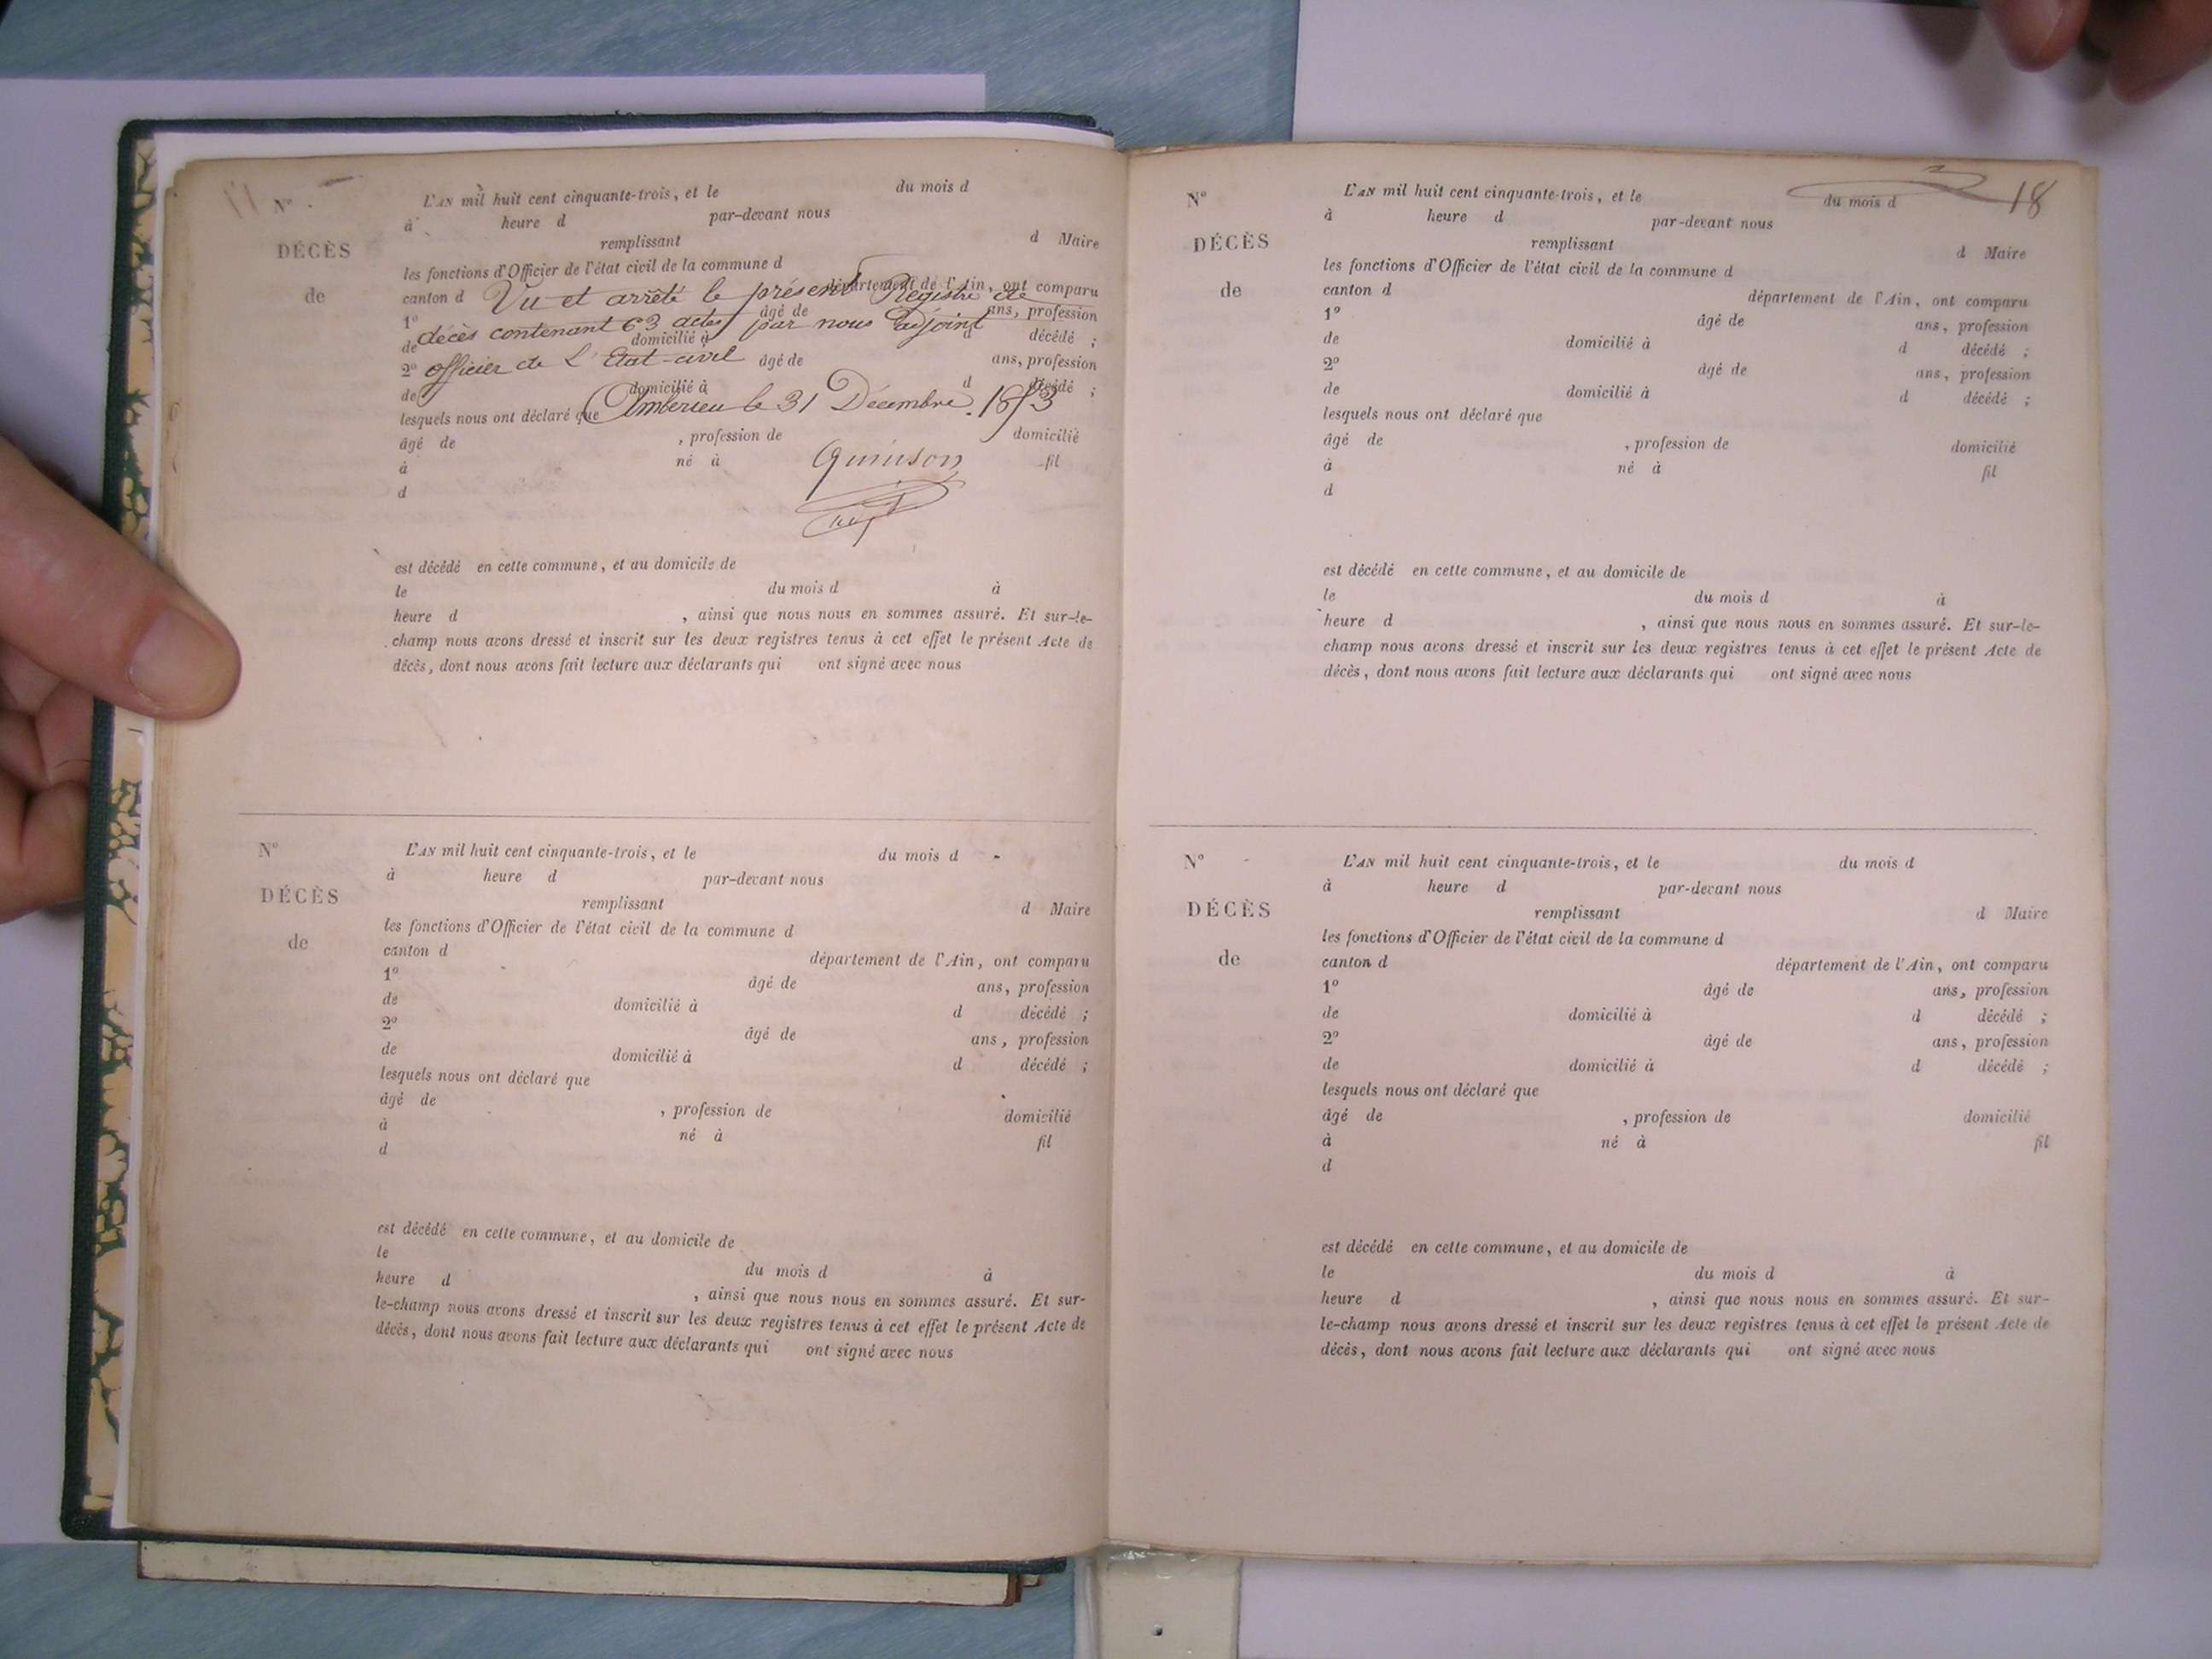 N°
DÉCÈS
de
L'AN mil huit cent cinquante-trois, et le du mois d
à heure d par-devant nous
remplissant d Maire
les fonctions d'Officier de l'état civil de la commune d
canton d département de l'Ain, ont comparu
Vu et arrêté le présent Registre de
1° âgé de ans, profession
décès contenant 63 actes par nous adjoint
de domicilié à d décédé ;
officier de L'Etat-civil
2° âgé de ans, profession
de domicilié à d décédé ;
Amberieu le 31 Décembre. 1853
lesquels nous ont déclaré que
âgé de , profession de domicilié
à né à fil
Quinson
d
est décédé en cette commune, et au domicile de
le du mois d à
heure d , ainsi que nous nous en sommes assuré. Et sur-le-
champ nous avons dressé et inscrit sur les deux registres tenus à cet effet le présent Acte de
décès, dont nous avons fait lecture aux déclarants qui ont signé avec nous
N°
DÉCÈS
de
L'AN mil huit cent cinquante-trois, et le du mois d
à heure d par-devant nous
remplissant d Maire
les fonctions d'Officier de l'état civil de la commune d
canton d département de l'Ain, ont comparu
1° âgé de ans, profession
de domicilié à d décédé ;
2° âgé de ans, profession
de domicilié à d décédé ;
lesquels nous ont déclaré que
âgé de , profession de domicilié
à né à fil
d
est décédé en cette commune, et au domicile de
le du mois d à
heure d , ainsi que nous nous en sommes assuré. Et sur-
le-champ nous avons dressé et inscrit sur les deux registres tenus à cet effet le présent Acte de
décès, dont nous avons fait lecture aux déclarants qui ont signé avec nous
18
N°
DÉCÈS
de
L'AN mil huit cent cinquante-trois, et le du mois d
à heure d par-devant nous
remplissant d Maire
les fonctions d'Officier de l'état civil de la commune d
canton d département de l'Ain, ont comparu
1° âgé de ans, profession
de domicilié à d décédé ;
2° âgé de ans, profession
de domicilié à d décédé ;
lesquels nous ont déclaré que
âgé de , profession de domicilié
à né à fil
d
est décédé en cette commune, et au domicile de
le du mois d à
heure d , ainsi que nous nous en sommes assuré. Et sur-le-
champ nous avons dressé et inscrit sur les deux registres tenus à cet effet le présent Acte de
décès, dont nous avons fait lecture aux déclarants qui ont signé avec nous
N°
DÉCÈS
de
L'AN mil huit cent cinquante-trois, et le du mois d
à heure d par-devant nous
remplissant d Maire
les fonctions d'Officier de l'état civil de la commune d
canton d département de l'Ain, ont comparu
1° âgé de ans, profession
de domicilié à d décédé ;
2° âgé de ans, profession
de domicilié à d décédé ;
lesquels nous ont déclaré que
âgé de , profession de domicilié
à né à fil
d
est décédé en cette commune, et au domicile de
le du mois d à
heure d , ainsi que nous nous en sommes assuré. Et sur-
le-champ nous avons dressé et inscrit sur les deux registres tenus à cet effet le présent Acte de
décès, dont nous avons fait lecture aux déclarants qui ont signé avec nous